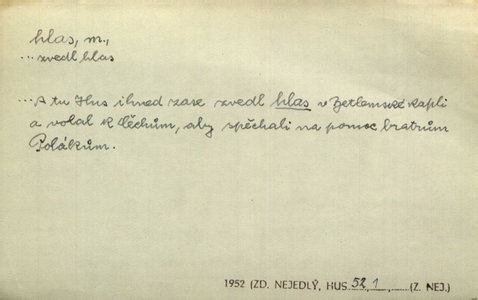 hlas, m.,
...zvedl hlas
...A tu Hus ihned zase zvedl hlas v Betlemské kapli
a volal k Čechům, aby spěchali na pomoc bratrům
Polákům.
1952 (ZD. NEJEDLÝ, HUS 52, 1, (Z. NEJ.)